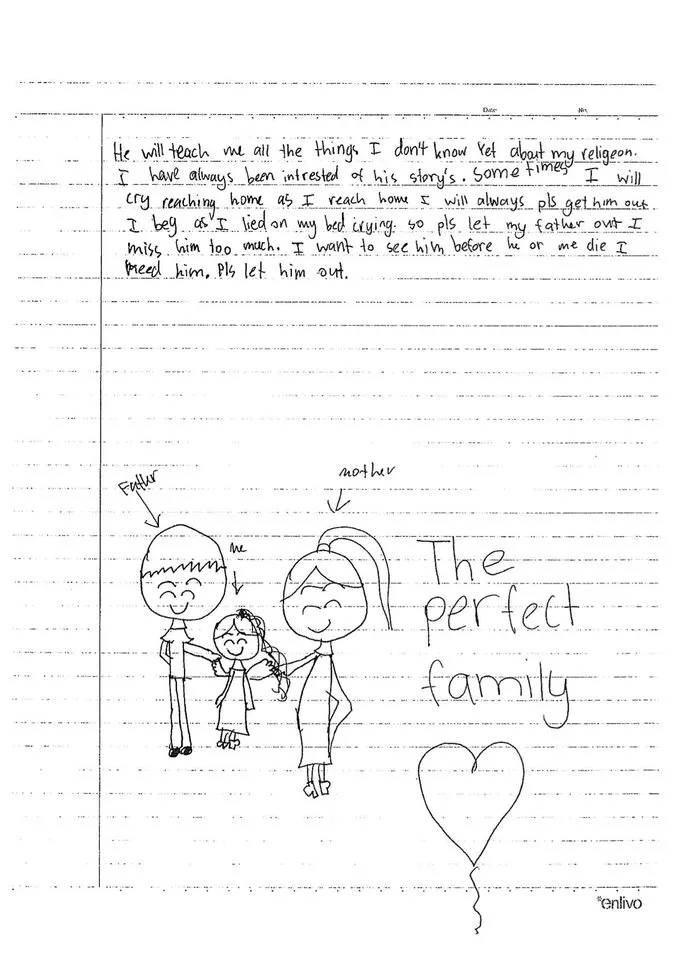 Date No.
He will teach me all the things I don't know yet about my religeon.
I have always been intrested of his story's. Sometimes I will
cry reaching home as I reach home I will always pls get him out
I beg as I lied on my bed crying. so pls let my father out I
miss him too much. I want to see him before he or me die I
need him. Pls let him out.
mother
Father
me
The
perfect
family
enlivo